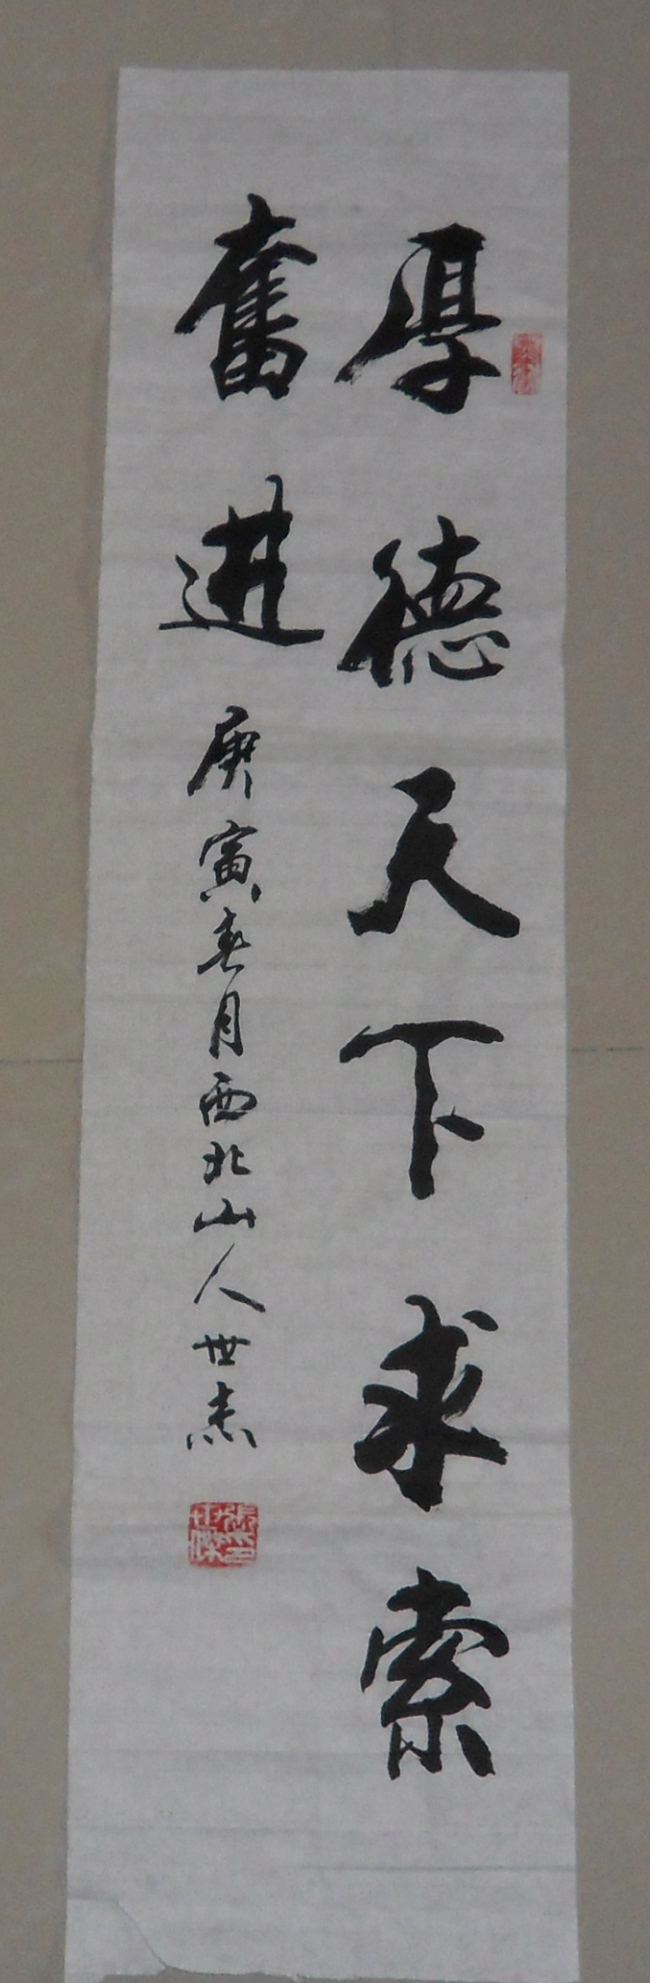 厚德天下求索
奮進
庚寅春月西北山人世杰